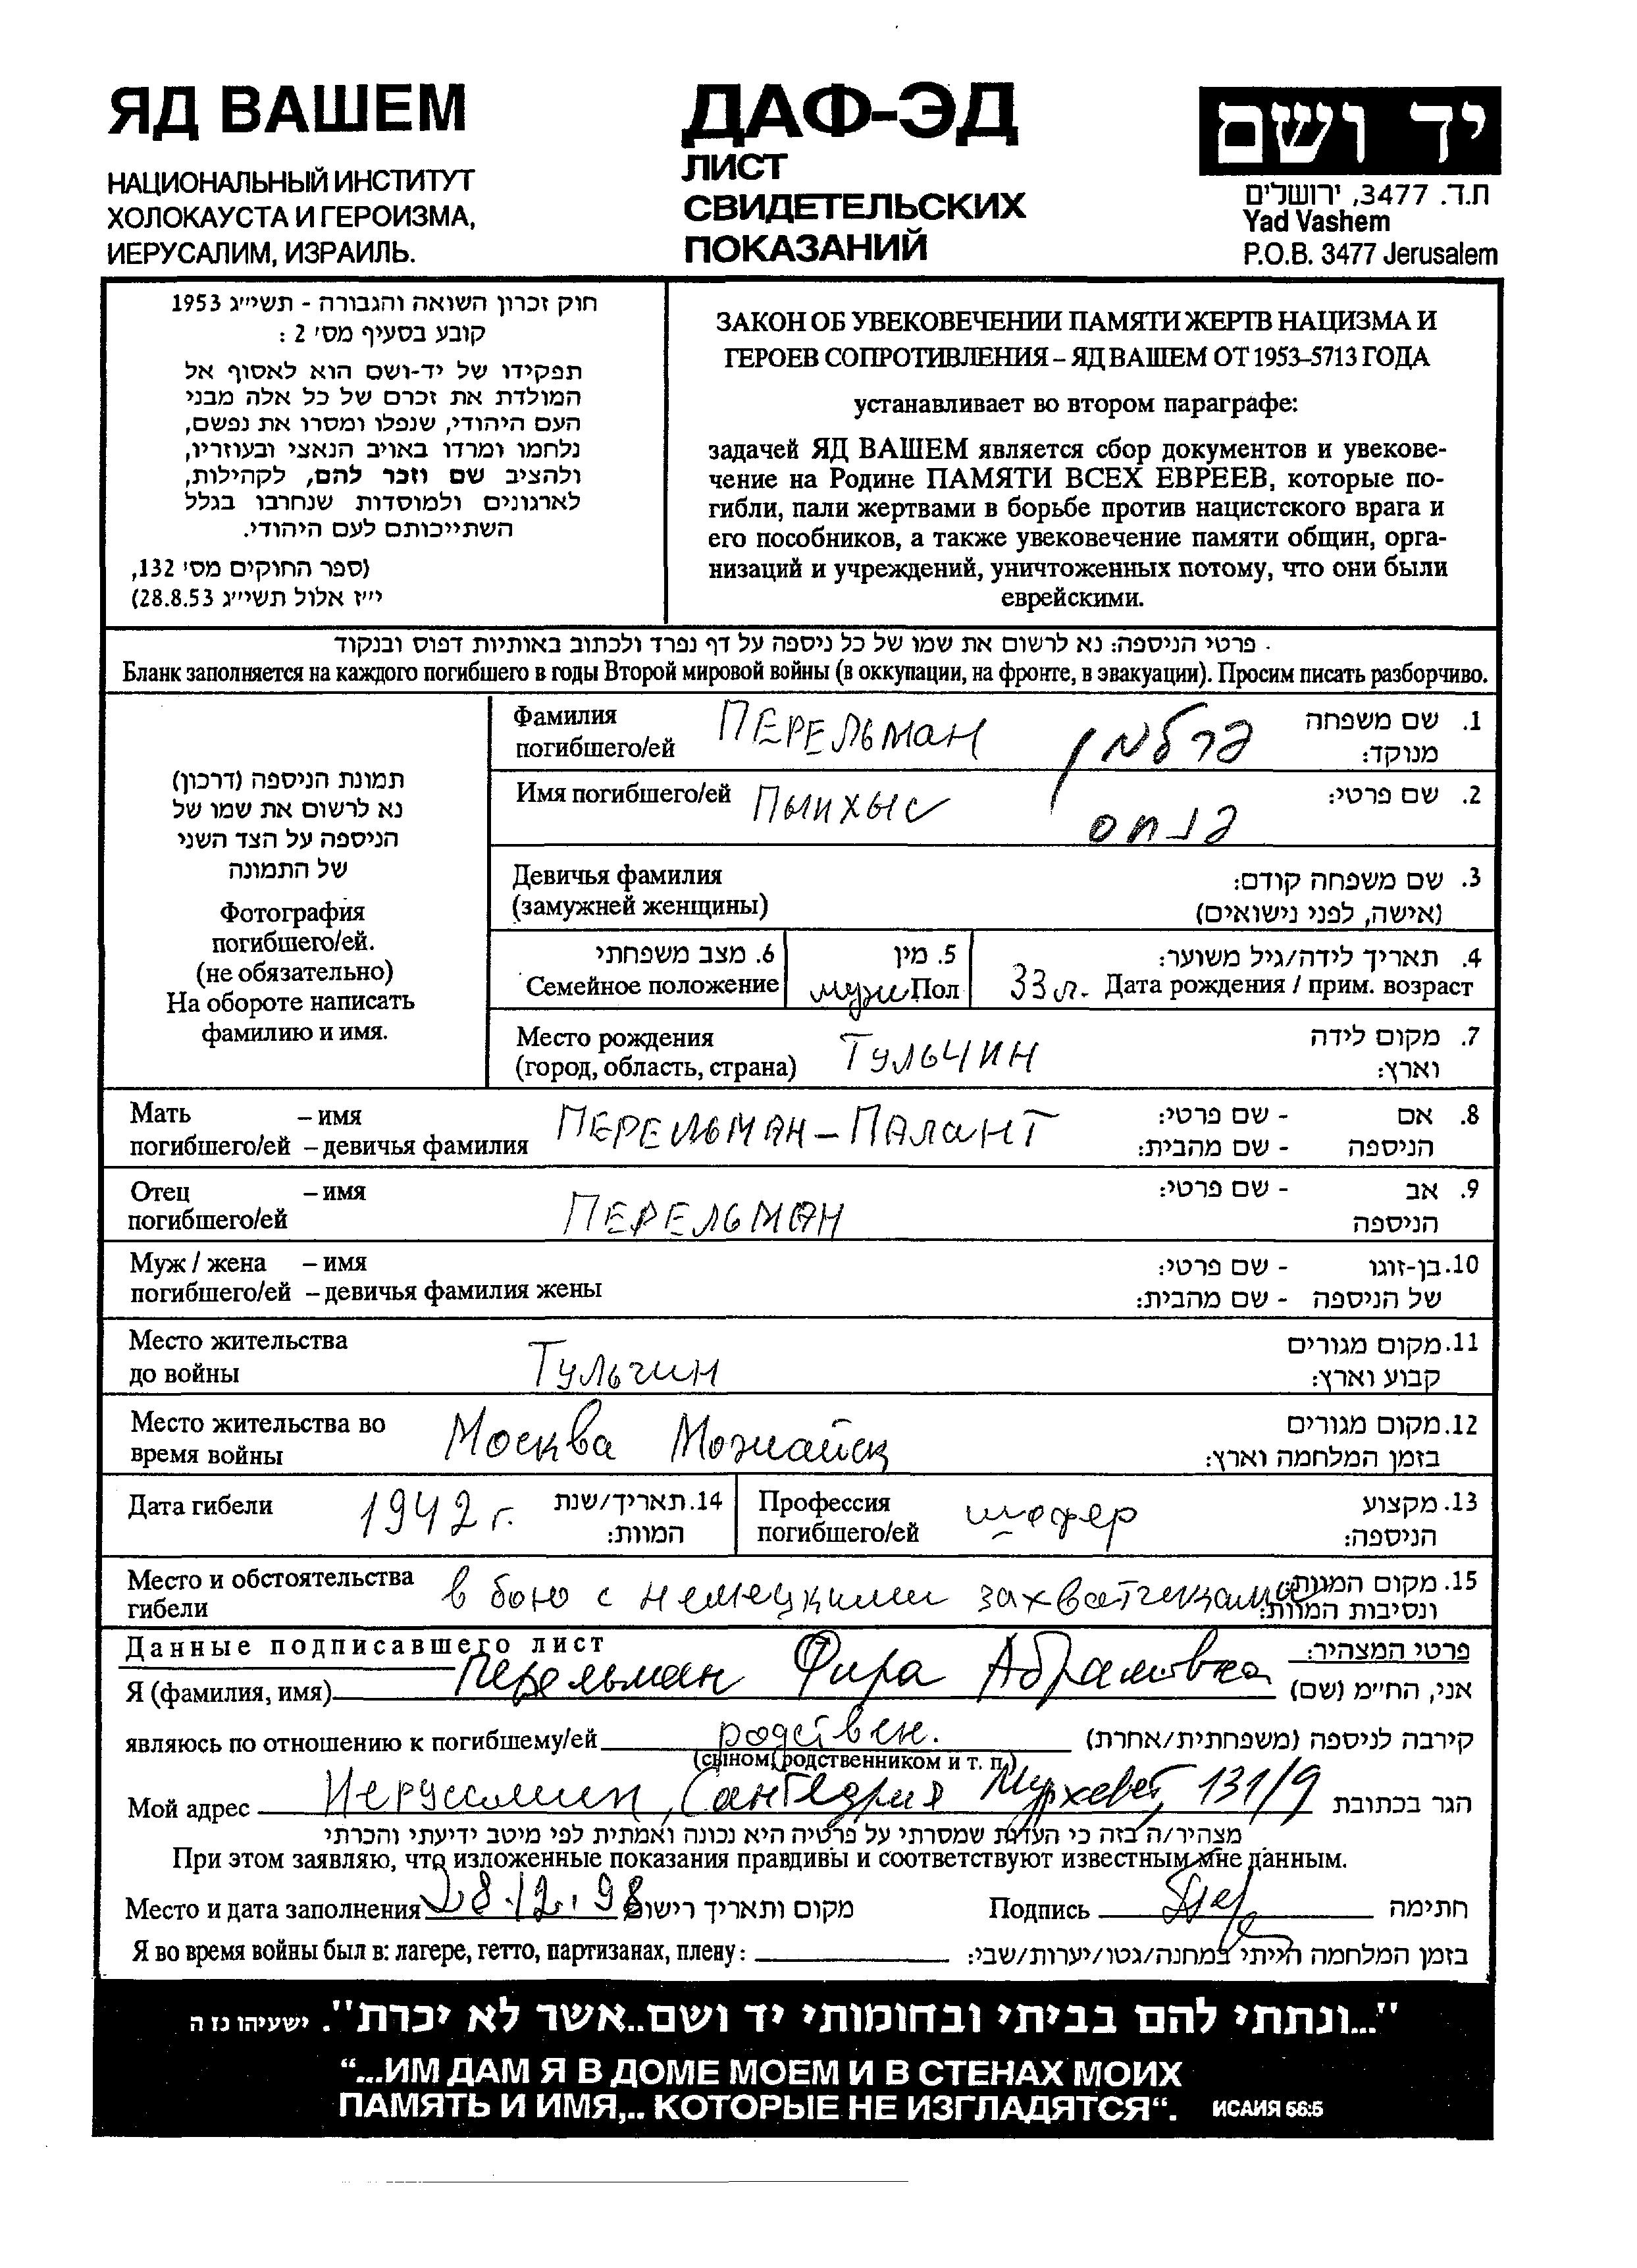 ЯД ВАШЕМ
НАЦИОНАЛЬНЫЙ ИНСТИТУТ
ХОЛОКАУСТА И ГЕРОИЗМА,
ИЕРУСАЛИМ, ИЗРАИЛЬ.
ДАФ-ЭД
ЛИСТ
СВИДЕТЕЛЬСКИХ
ПОКАЗАНИЙ
יד ושם
ת.ד. 3477, ירושלים
Yad Vashem
P.O.B. 3477 Jerusalem
חוק זכרון השואה והגבורה - תשי״ג 1953
קובע בסעיף מס׳ 2 :
תפקידו של יד-ושם הוא לאסוף אל
המולדת את זכרם של כל אלה מבני
העם היהודי, שנפלו ומסרו את נפשם,
נלחמו ומרדו באויב הנאצי ובעוזריו,
ולהציב שם וזכר להם, לקהילות,
לארגונים ולמוסדות שנחרבו בגלל
השתייכותם לעם היהודי.
(ספר החוקים מס׳ 132,
י״ז אלול תשי״ג 28.8.53)
ЗАКОН ОБ УВЕКОВЕЧЕНИИ ПАМЯТИ ЖЕРТВ НАЦИЗМА И
ГЕРОЕВ СОПРОТИВЛЕНИЯ – ЯД ВАШЕМ ОТ 1953–5713 ГОДА
устанавливает во втором параграфе:
задачей ЯД ВАШЕМ является сбор документов и увекове-
чение на Родине ПАМЯТИ ВСЕХ ЕВРЕЕВ, которые по-
гибли, пали жертвами в борьбе против нацистского врага и
его пособников, а также увековечение памяти общин, орга-
низаций и учреждений, уничтоженных потому, что они были
еврейскими.
פרטי הניספה: נא לרשום את שמו של כל ניספה על דף נפרד ולכתוב באותיות דפוס ובנקוד
Бланк заполняется на каждого погибшего в годы Второй мировой войны (в оккупации, на фронте, в эвакуации). Просим писать разборчиво.
תמונת הניספה (דרכון)
נא לרשום את שמו של
הניספה על הצד השני
של התמונה
Фотография
погибшего/ей.
(не обязательно)
На обороте написать
фамилию и имя.
Фамилия ПЕРЕЛЬМАН פרלמן 1. שם משפחה
погибшего/ей מנוקד:
Имя погибшего/ей Пыихыс פנחס 2. שם פרטי:
Девичья фамилия 3. שם משפחה קודם:
(замужней женщины) (אישה, לפני נישואים)
6. מצב משפחתי 5. מין 4. תאריך לידה/גיל משוער:
Семейное положение муж Пол 33 л. Дата рождения / прим. возраст
Место рождения ТУЛЬЧИН 7. מקום לידה
(город, область, страна) וארץ:
Мать – имя ПЕРЕЛЬМАН – ПАЛАНТ 8. אם - שם פרטי:
погибшего/ей – девичья фамилия הניספה - שם מהבית:
Отец – имя ПЕРЕЛЬМАН 9. אב - שם פרטי:
погибшего/ей הניספה
Муж / жена – имя 10. בן-זוגו - שם פרטי:
погибшего/ей – девичья фамилия жены של הניספה - שם מהבית:
Место жительства Тульчин 11. מקום מגורים
до войны קבוע וארץ:
Место жительства во Москва Можайск 12. מקום מגורים
время войны בזמן המלחמה וארץ:
Дата гибели 1942 г. 14. תאריך/שנת Профессия шофер 13. מקצוע
המוות: погибшего/ей הניספה:
Место и обстоятельства в бою с немецкими захватчицами 15. מקום המוות
гибели ונסיבות המוות:
Данные подписавшего лист פרטי המצהיר:
Я (фамилия, имя) Перельман Фира Абрамовна אני, הח״מ (שם)
являюсь по отношению к погибшему/ей родствен. קירבה לניספה (משפחתית/אחרת)
(сыном, родственником и т. п.)
Мой адрес Иерусалим, Сангедрия Мурхевет, 131/9 הגר בכתובת
מצהיר/ה בזה כי העדות שמסרתי על פרטיה היא נכונה ואמתית לפי מיטב ידיעתי והכרתי
При этом заявляю, что изложенные показания правдивы и соответствуют известным мне данным.
Место и дата заполнения 28.12.98 מקום ותאריך רישום Подпись Пер חתימה
Я во время войны был в: лагере, гетто, партизанах, плену: בזמן המלחמה הייתי במחנה/גטו/יערות/שבי:
"...ונתתי להם בביתי ובחומותי יד ושם..אשר לא יכרת". ישעיהו נז ה
“...ИМ ДАМ Я В ДОМЕ МОЕМ И В СТЕНАХ МОИХ
ПАМЯТЬ И ИМЯ,.. КОТОРЫЕ НЕ ИЗГЛАДЯТСЯ“. ИСАИЯ 56:5